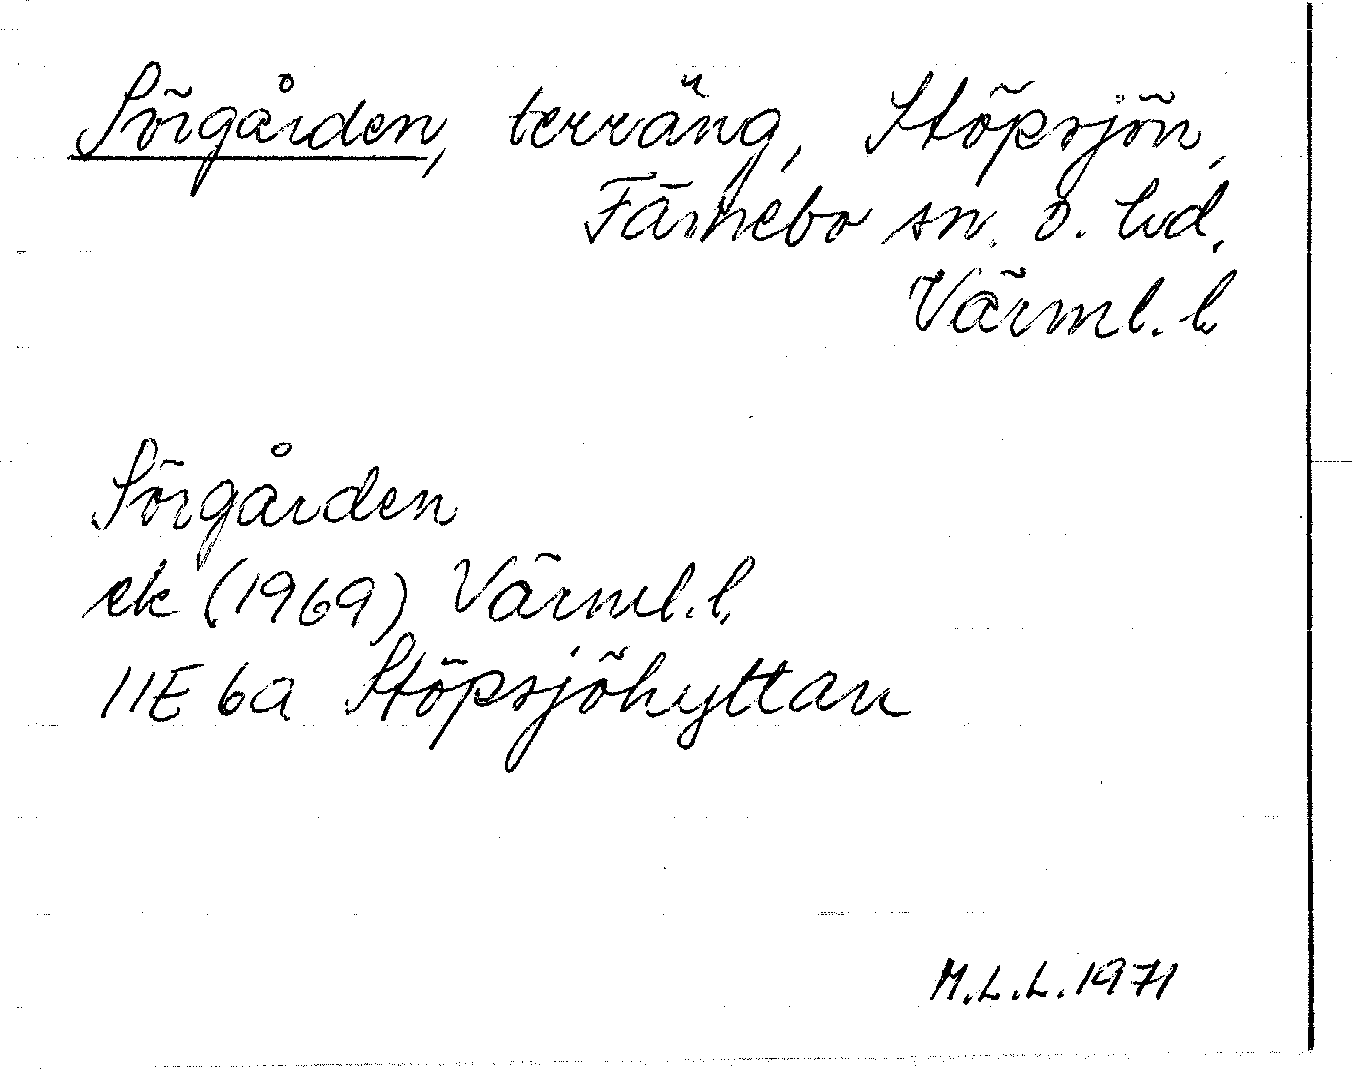 Sörgården, terräng, Stöpsjön,
Färnebo sn. o. hd.
Värml. l.
Sörgården
ek (1969) Värml. l.
11E 6a Stöpsjöhyttan
M.L.L. 1971